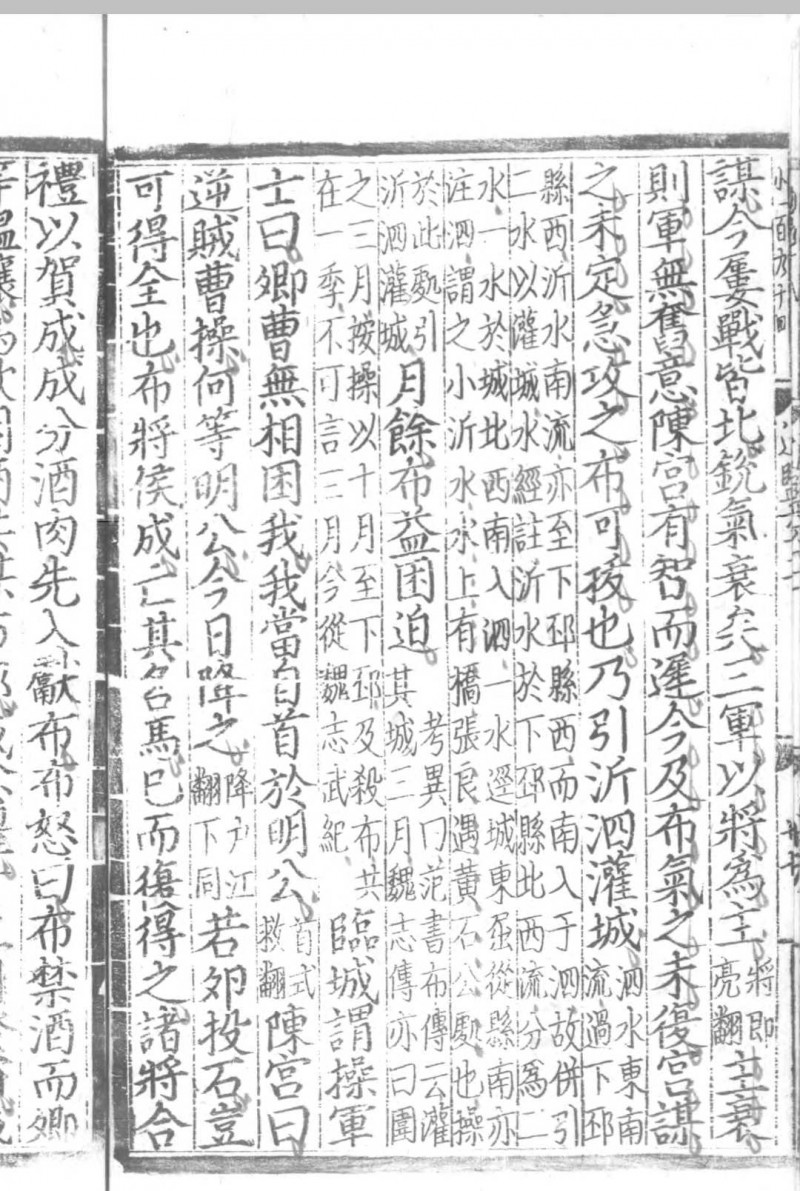 謀今屢戰皆北銳氣衰矣三軍以將爲主將即亮翻主衰
則軍無奮意陳宮有智而遲今及布氣之未復宮謀
之未定急攻之布可拔也乃引沂泗灌城泗水東南流過下邳
縣西沂水南流亦至下邳縣西而南入于泗故併引二水以灌城水經註沂水於下邳縣北西流分爲二
水一水於城北西南入泗一水逕城東屈從縣南亦注泗謂之小沂水水上有橋張良遇黃石公處也操
於此處引沂泗灌城月餘布益困迫考異曰范書布傳云灌其城三月魏志傳亦曰圍
之三月按操以十月至下邳及殺布共在一季不可言三月今從魏志武紀臨城謂操軍
士曰卿曹無相困我我當自首於明公首式救翻陳宮曰
逆賊曹操何等明公今日降之降戶江翻下同若卵投石豈
可得全也布將侯成亡其名馬已而復得之諸將合
禮以賀成成分酒肉先入獻布布怒曰布禁酒而卿